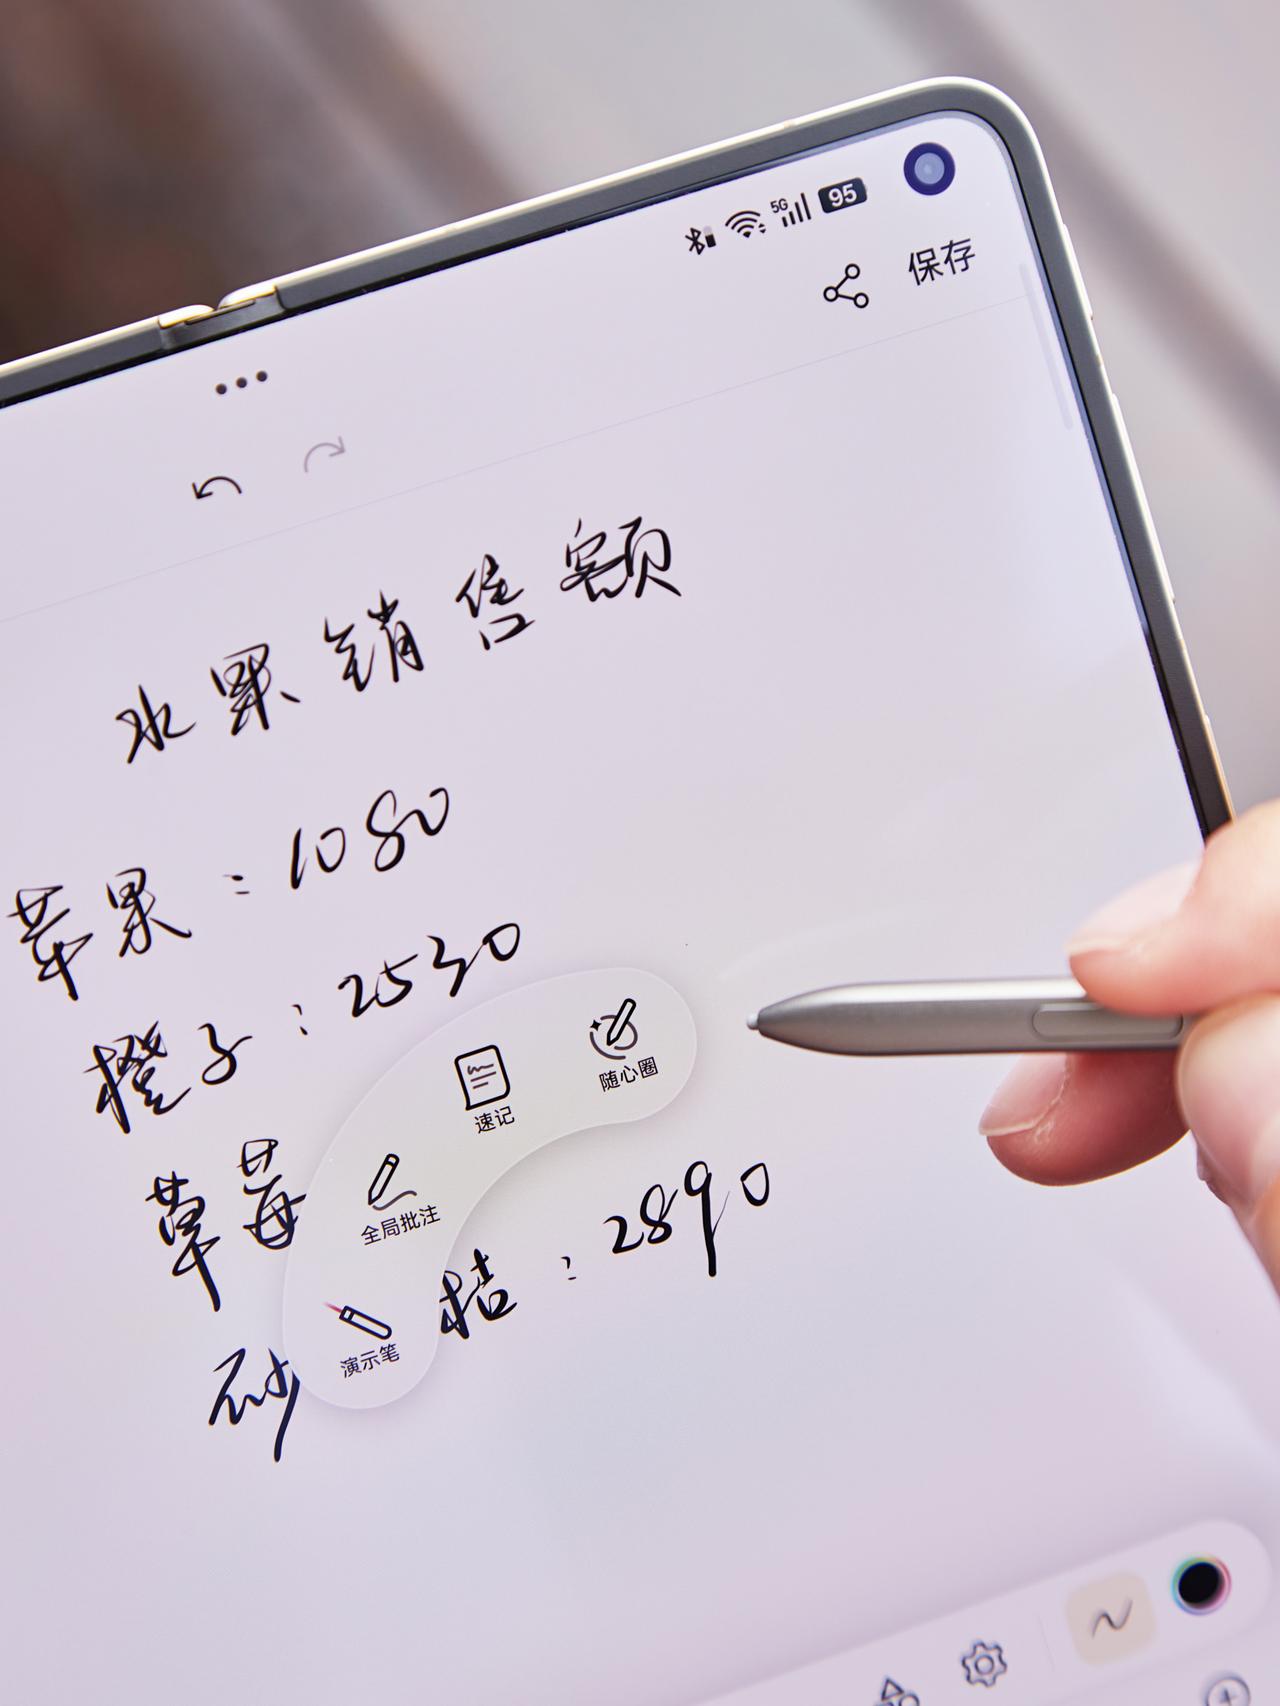 5G 95
保存
水果销售额
苹果：1080
橙子：2530
随心圈
速记
草莓
全局批注
桔：2890
演示笔
砂